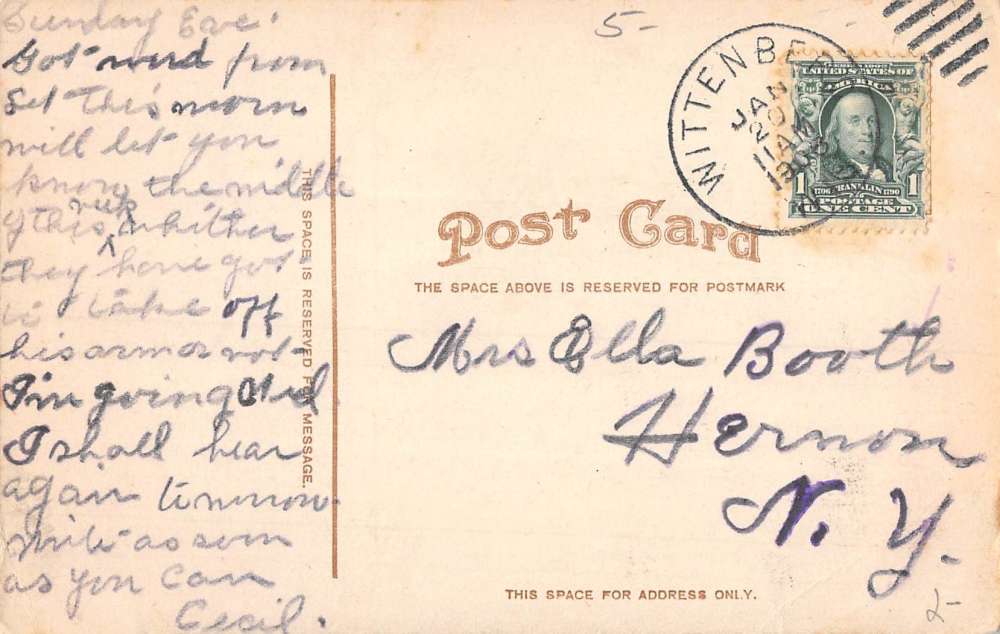 Sunday Eve.
Got word from
Sel this morn
will let you
know the middle
of this week whither
they have got
to take off
his arm or not
I'm going Wed
I shall hear
again tomorrow.
write as soon
as you can
Cecil.
THIS SPACE IS RESERVED FOR MESSAGE.
5-
WITTENBERG
JAN
20
11 AM
1908
N.Y.
SERIES 1902
UNITED STATES OF
AMERICA
1
1706 FRANKLIN 1790
POSTAGE
ONE CENT
Post Card
THE SPACE ABOVE IS RESERVED FOR POSTMARK
Mrs Ella Booth
Hernon
N. Y.
THIS SPACE FOR ADDRESS ONLY.
2-